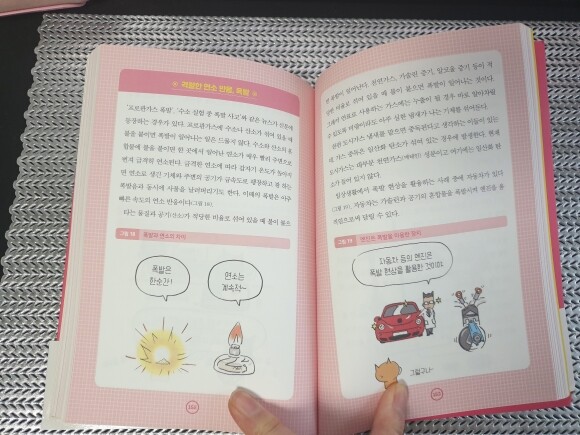 격렬한 연소 반응, 폭발
'프로판가스 폭발', '수소 실험 중 폭발 사고'와 같은 뉴스가 신문에
등장하는 경우가 있다. 프로판가스에 수소나 산소가 섞여 있을 때
불을 붙이면 폭발이 일어나는 일은 드물지 않다. 수소와 산소의 혼
합물에 불을 붙이면 한 곳에서 일어난 연소가 매우 빨리 주변으로
번져 급격히 연소된다. 급격한 연소에 따라 갑자기 온도가 높아지
면 연소로 생긴 기체와 주변의 공기가 급속도로 팽창하고 함께
폭발음과 동시에 사물을 날려버리기도 한다. 이처럼 폭발은 아주
빠른 속도의 연소 반응이다(그림 78).
타는 물질과 공기(산소)가 적당한 비율로 섞여 있을 때 불이 붙으
그림 78 폭발과 연소의 차이
폭발은
한순간!
연소는
계속적~
면 폭발이 일어난다. 천연가스, 가솔린 증기, 알코올 증기 등이 적
당한 비율로 섞여 있을 때 불이 붙으면 폭발이 일어나는 것이다.
그래서 연료로 사용하는 가스에는 누출이 될 경우 바로 알아차릴
수 있도록 악취를 넣어
한편 도시가스 냄새를 맡으면 중독된다고 생각하는 이들이 있다
일상생활에서 폭발 현상을 활용하는 사례 중에 자동차가 있다
(그림 79). 자동차는 가솔린과 공기의 혼합물을 폭발시켜 엔진을 움
직임으로써 달릴 수 있다.
그림 79 엔진은 폭발을 이용한 장치
자동차 등의 엔진은
폭발 현상을 활용한 것이야.
그렇구나~